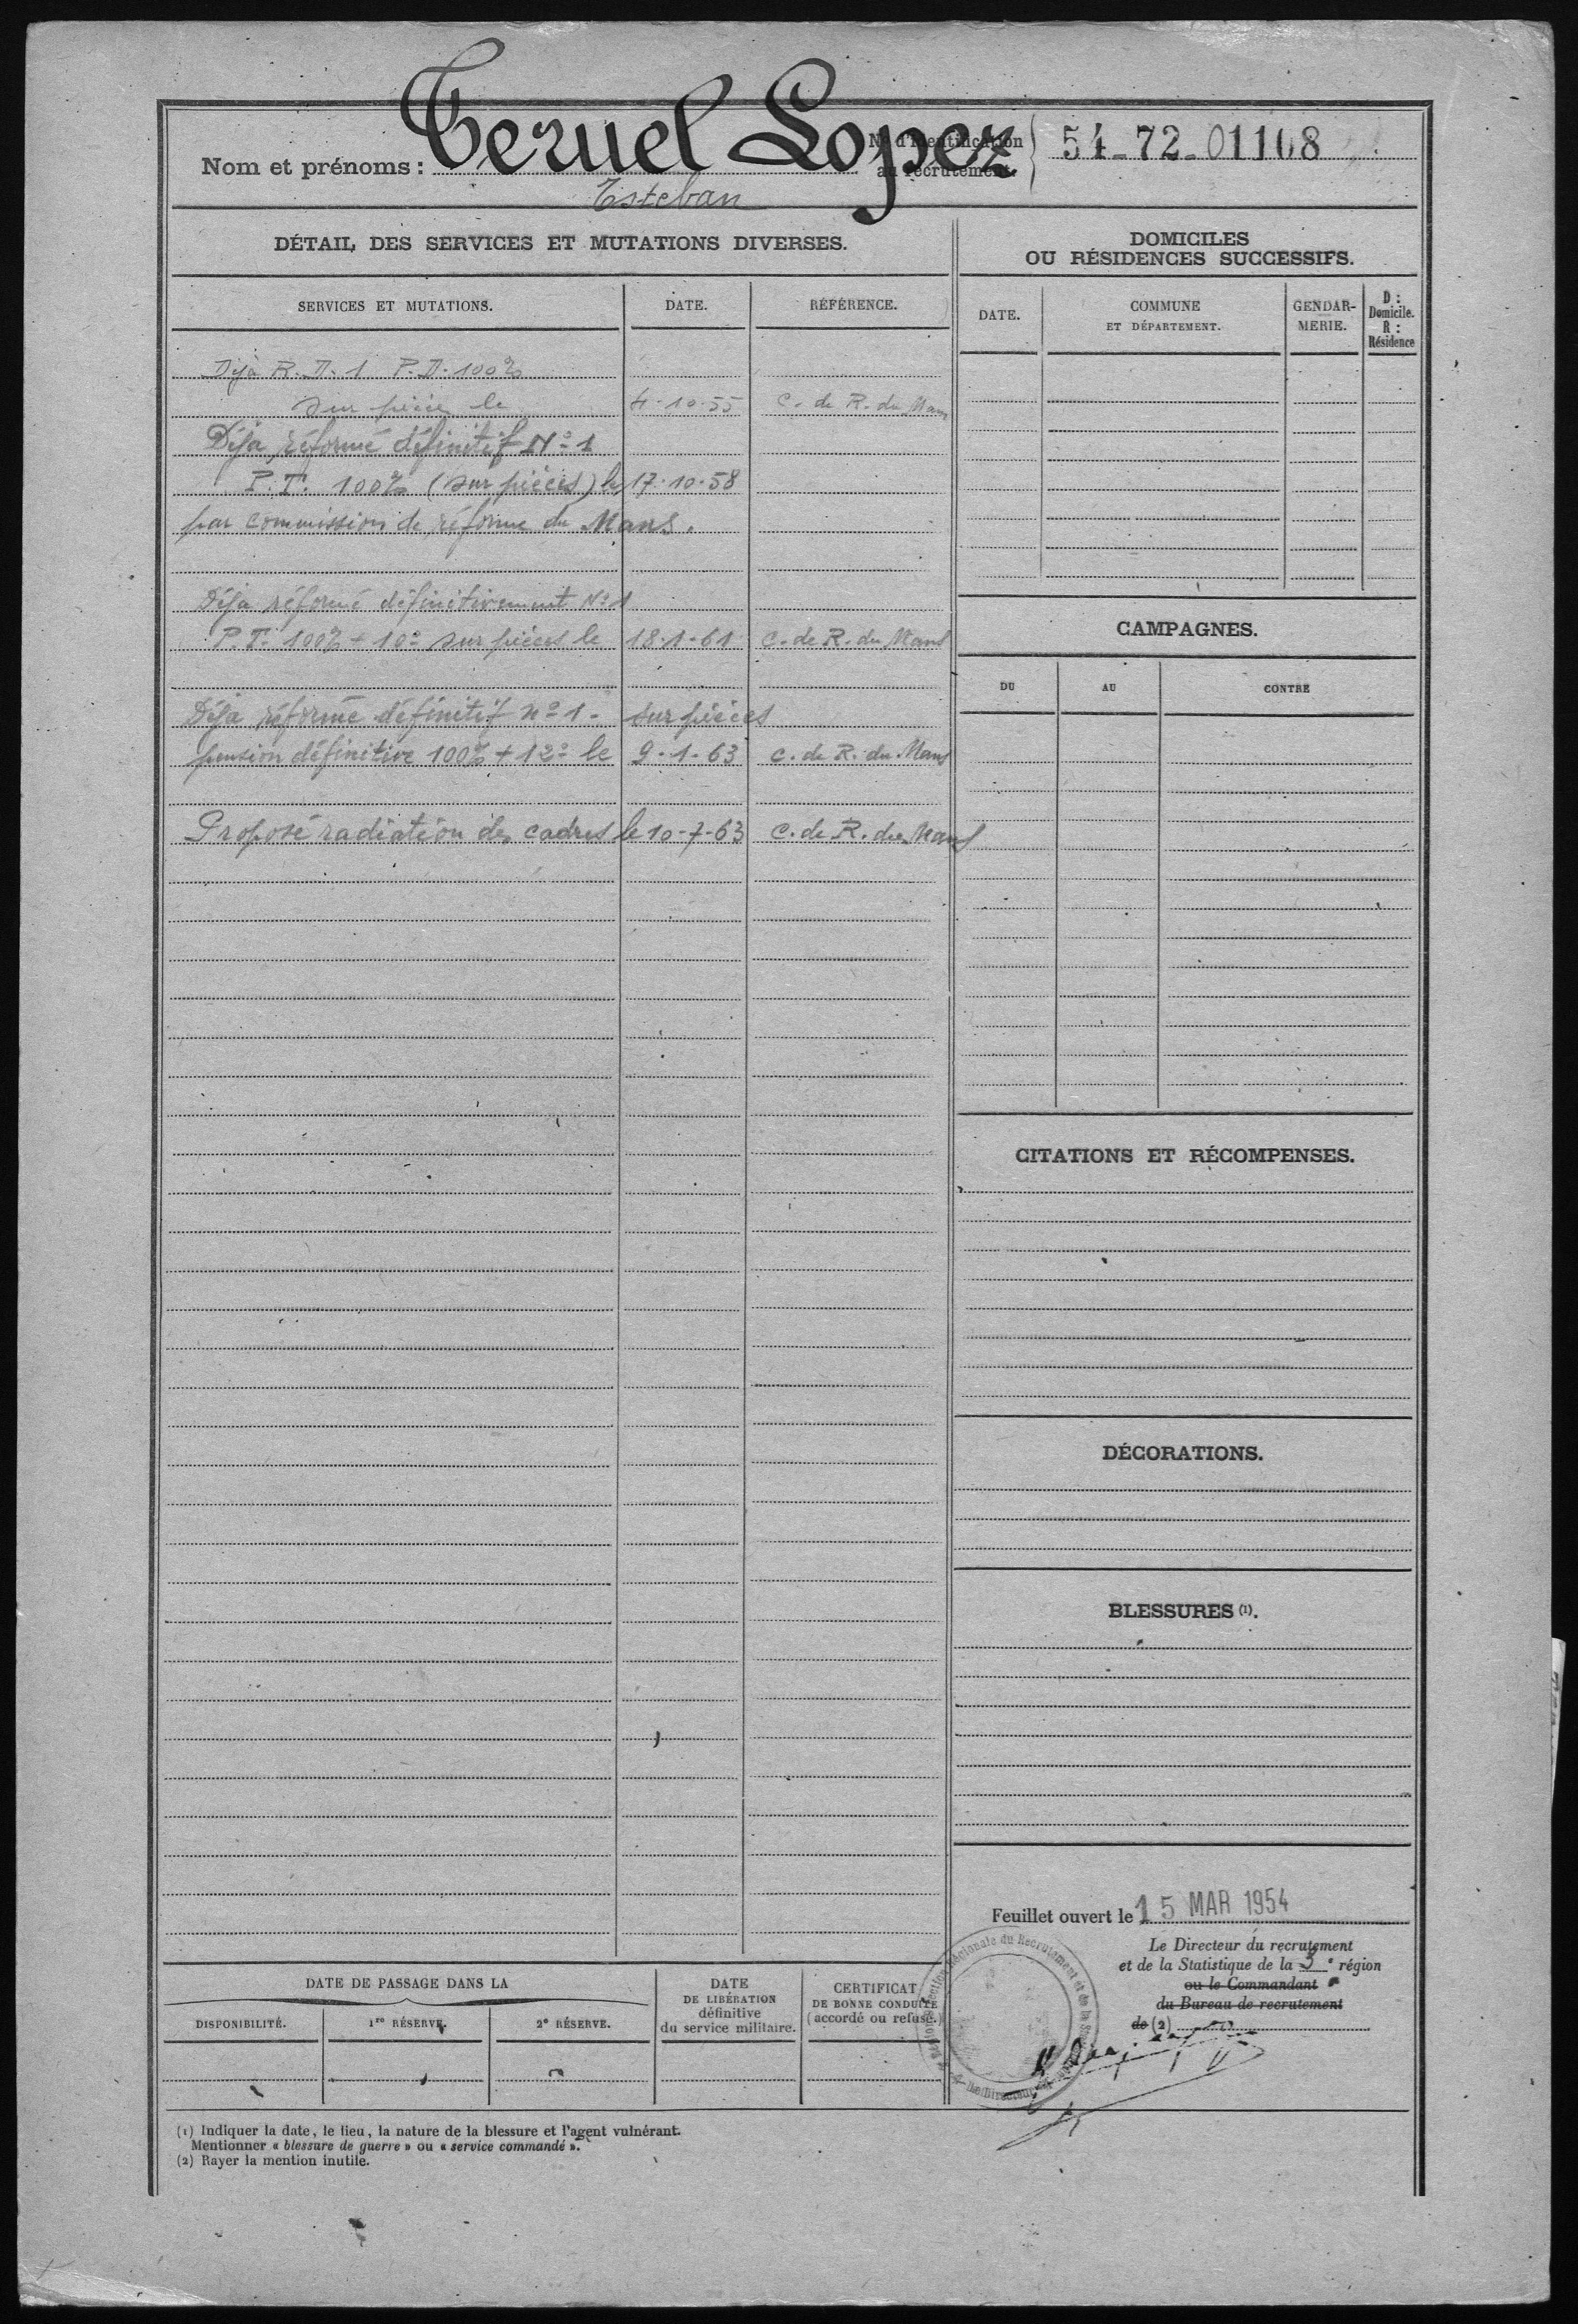 Nom et prénoms : Teruel Lopez
Esteban
N° d'identification
au recrutement.
54-72-01108
DÉTAIL DES SERVICES ET MUTATIONS DIVERSES.
SERVICES ET MUTATIONS.
DATE.
RÉFÉRENCE.
Déjà R.D. 1 P.D. 100%
sur pièces le 4-10-55 C. de R. du Mans
Déjà réformé définitif N° 1
P.T. 100% (sur pièces) le 17-10-58
par commission de réforme du Mans.
Déja réformé définitivement N° 1
P.T. 100% + 10° sur pièces le 18-1-61 C. de R. du Mans
Déja réformé définitif n° 1 - sur pièces
pension définitive 100% + 12° le 9-1-63 C. de R. du Mans
Proposé radiation des cadres le 10-7-63 C. de R. du Mans
DOMICILES
OU RÉSIDENCES SUCCESSIFS.
DATE.
COMMUNE
ET DÉPARTEMENT.
GENDAR-
MERIE.
D :
Domicile.
R :
Résidence
CAMPAGNES.
DU
AU
CONTRE
CITATIONS ET RÉCOMPENSES.
DÉCORATIONS.
BLESSURES (1).
Feuillet ouvert le 15 MAR 1954
Le Directeur du recrutement
et de la Statistique de la 3e région
ou le Commandant
du Bureau de recrutement
de (2)
DATE DE PASSAGE DANS LA
DISPONIBILITÉ.
1re RÉSERVE.
2e RÉSERVE.
DATE
DE LIBÉRATION
définitive
du service militaire.
CERTIFICAT
DE BONNE CONDUITE
(accordé ou refusé.)
(1) Indiquer la date, le lieu, la nature de la blessure et l'agent vulnérant.
Mentionner « blessure de guerre » ou « service commandé ».
(2) Rayer la mention inutile.